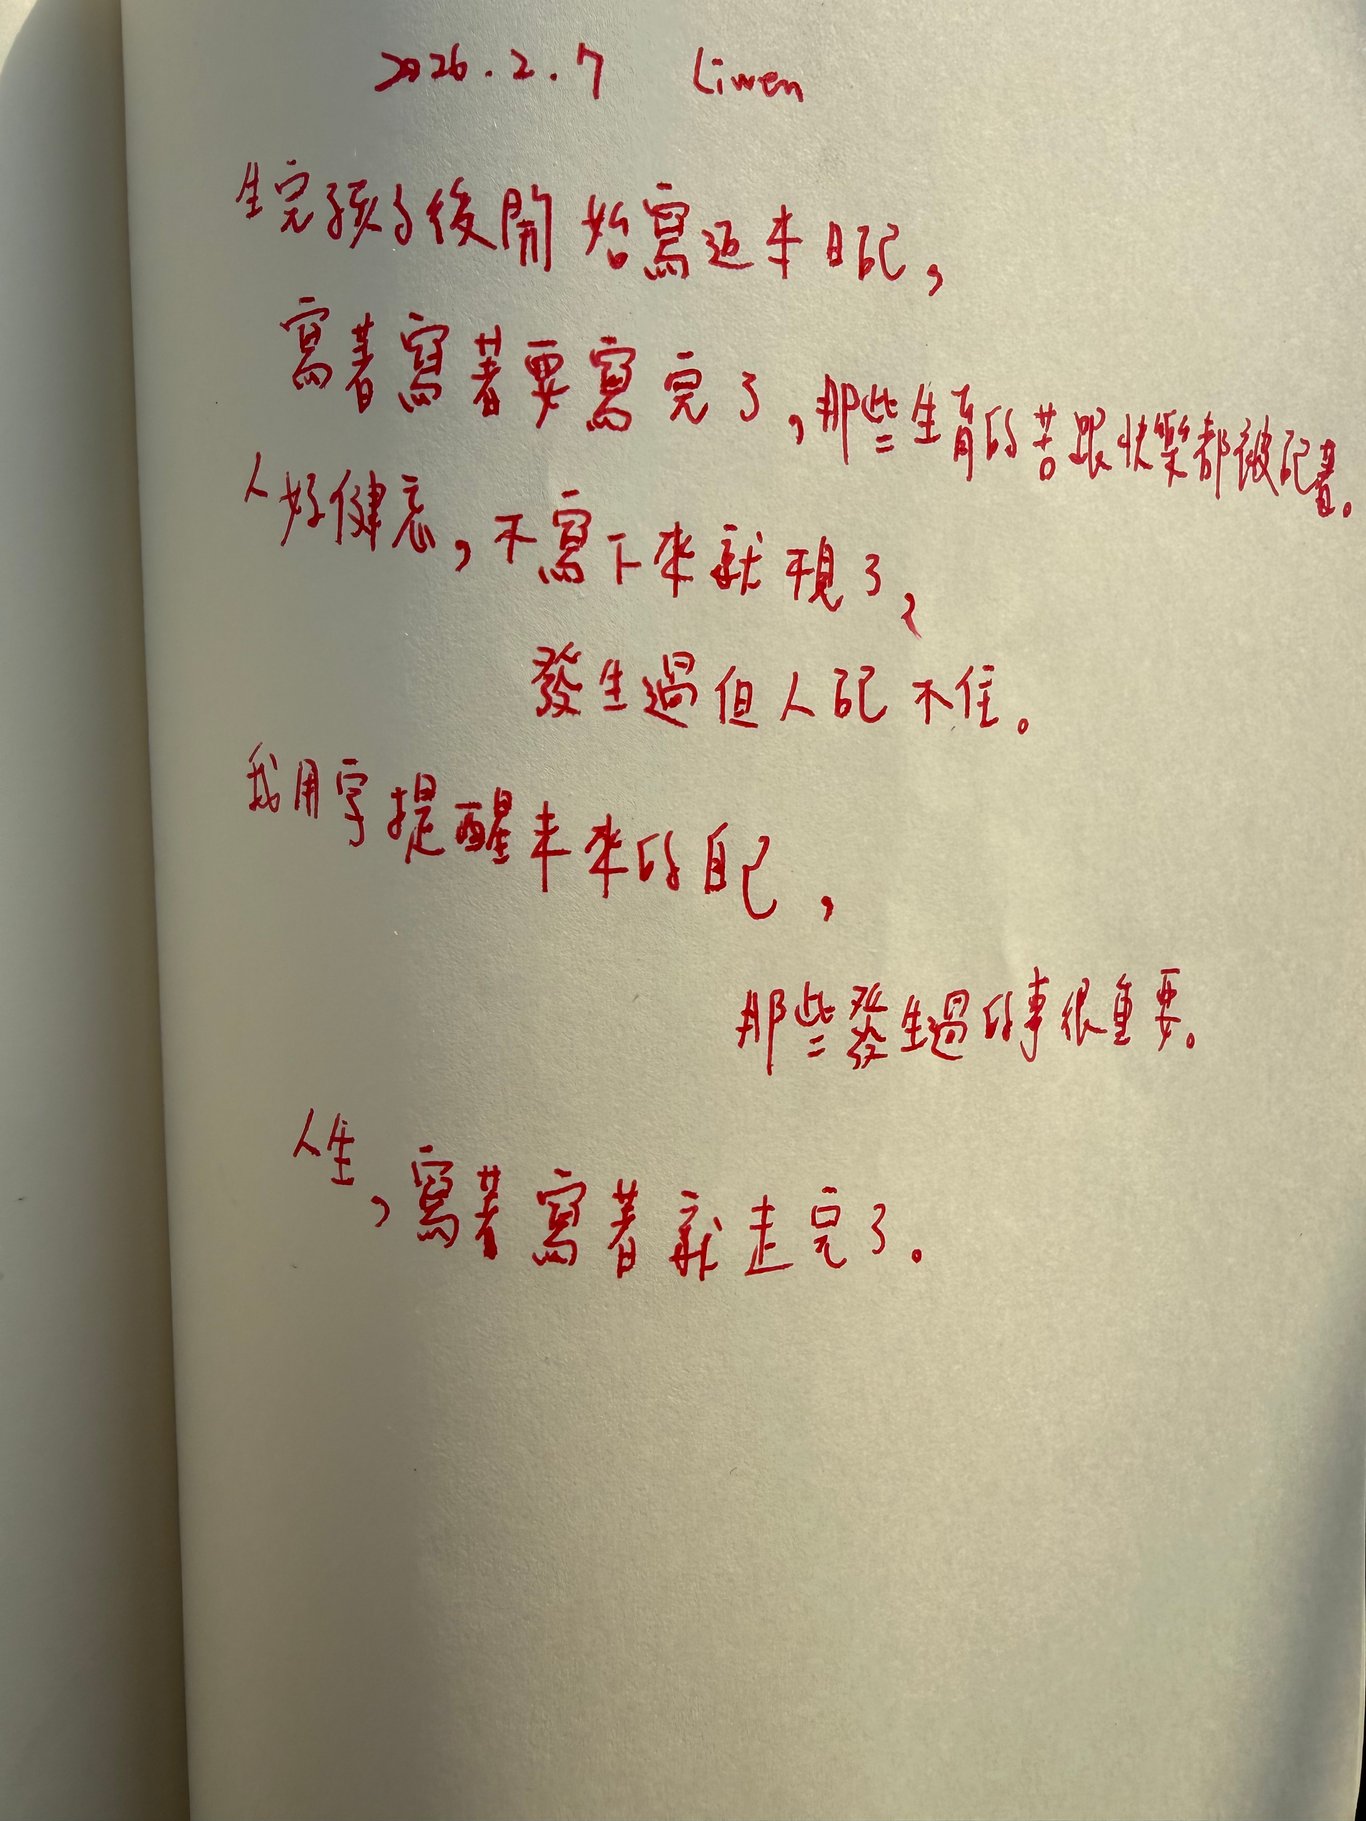 2026.2.7 Liwen
生完孩子後開始寫這本日記,
寫著寫著要寫完了,那些生育的苦跟快樂都被記著。
人好健忘,不寫下來就不見了,
發生過但人記不住。
我用字提醒未來的自己,
那些發生過的事很重要。
人生,寫著寫著就走完了。